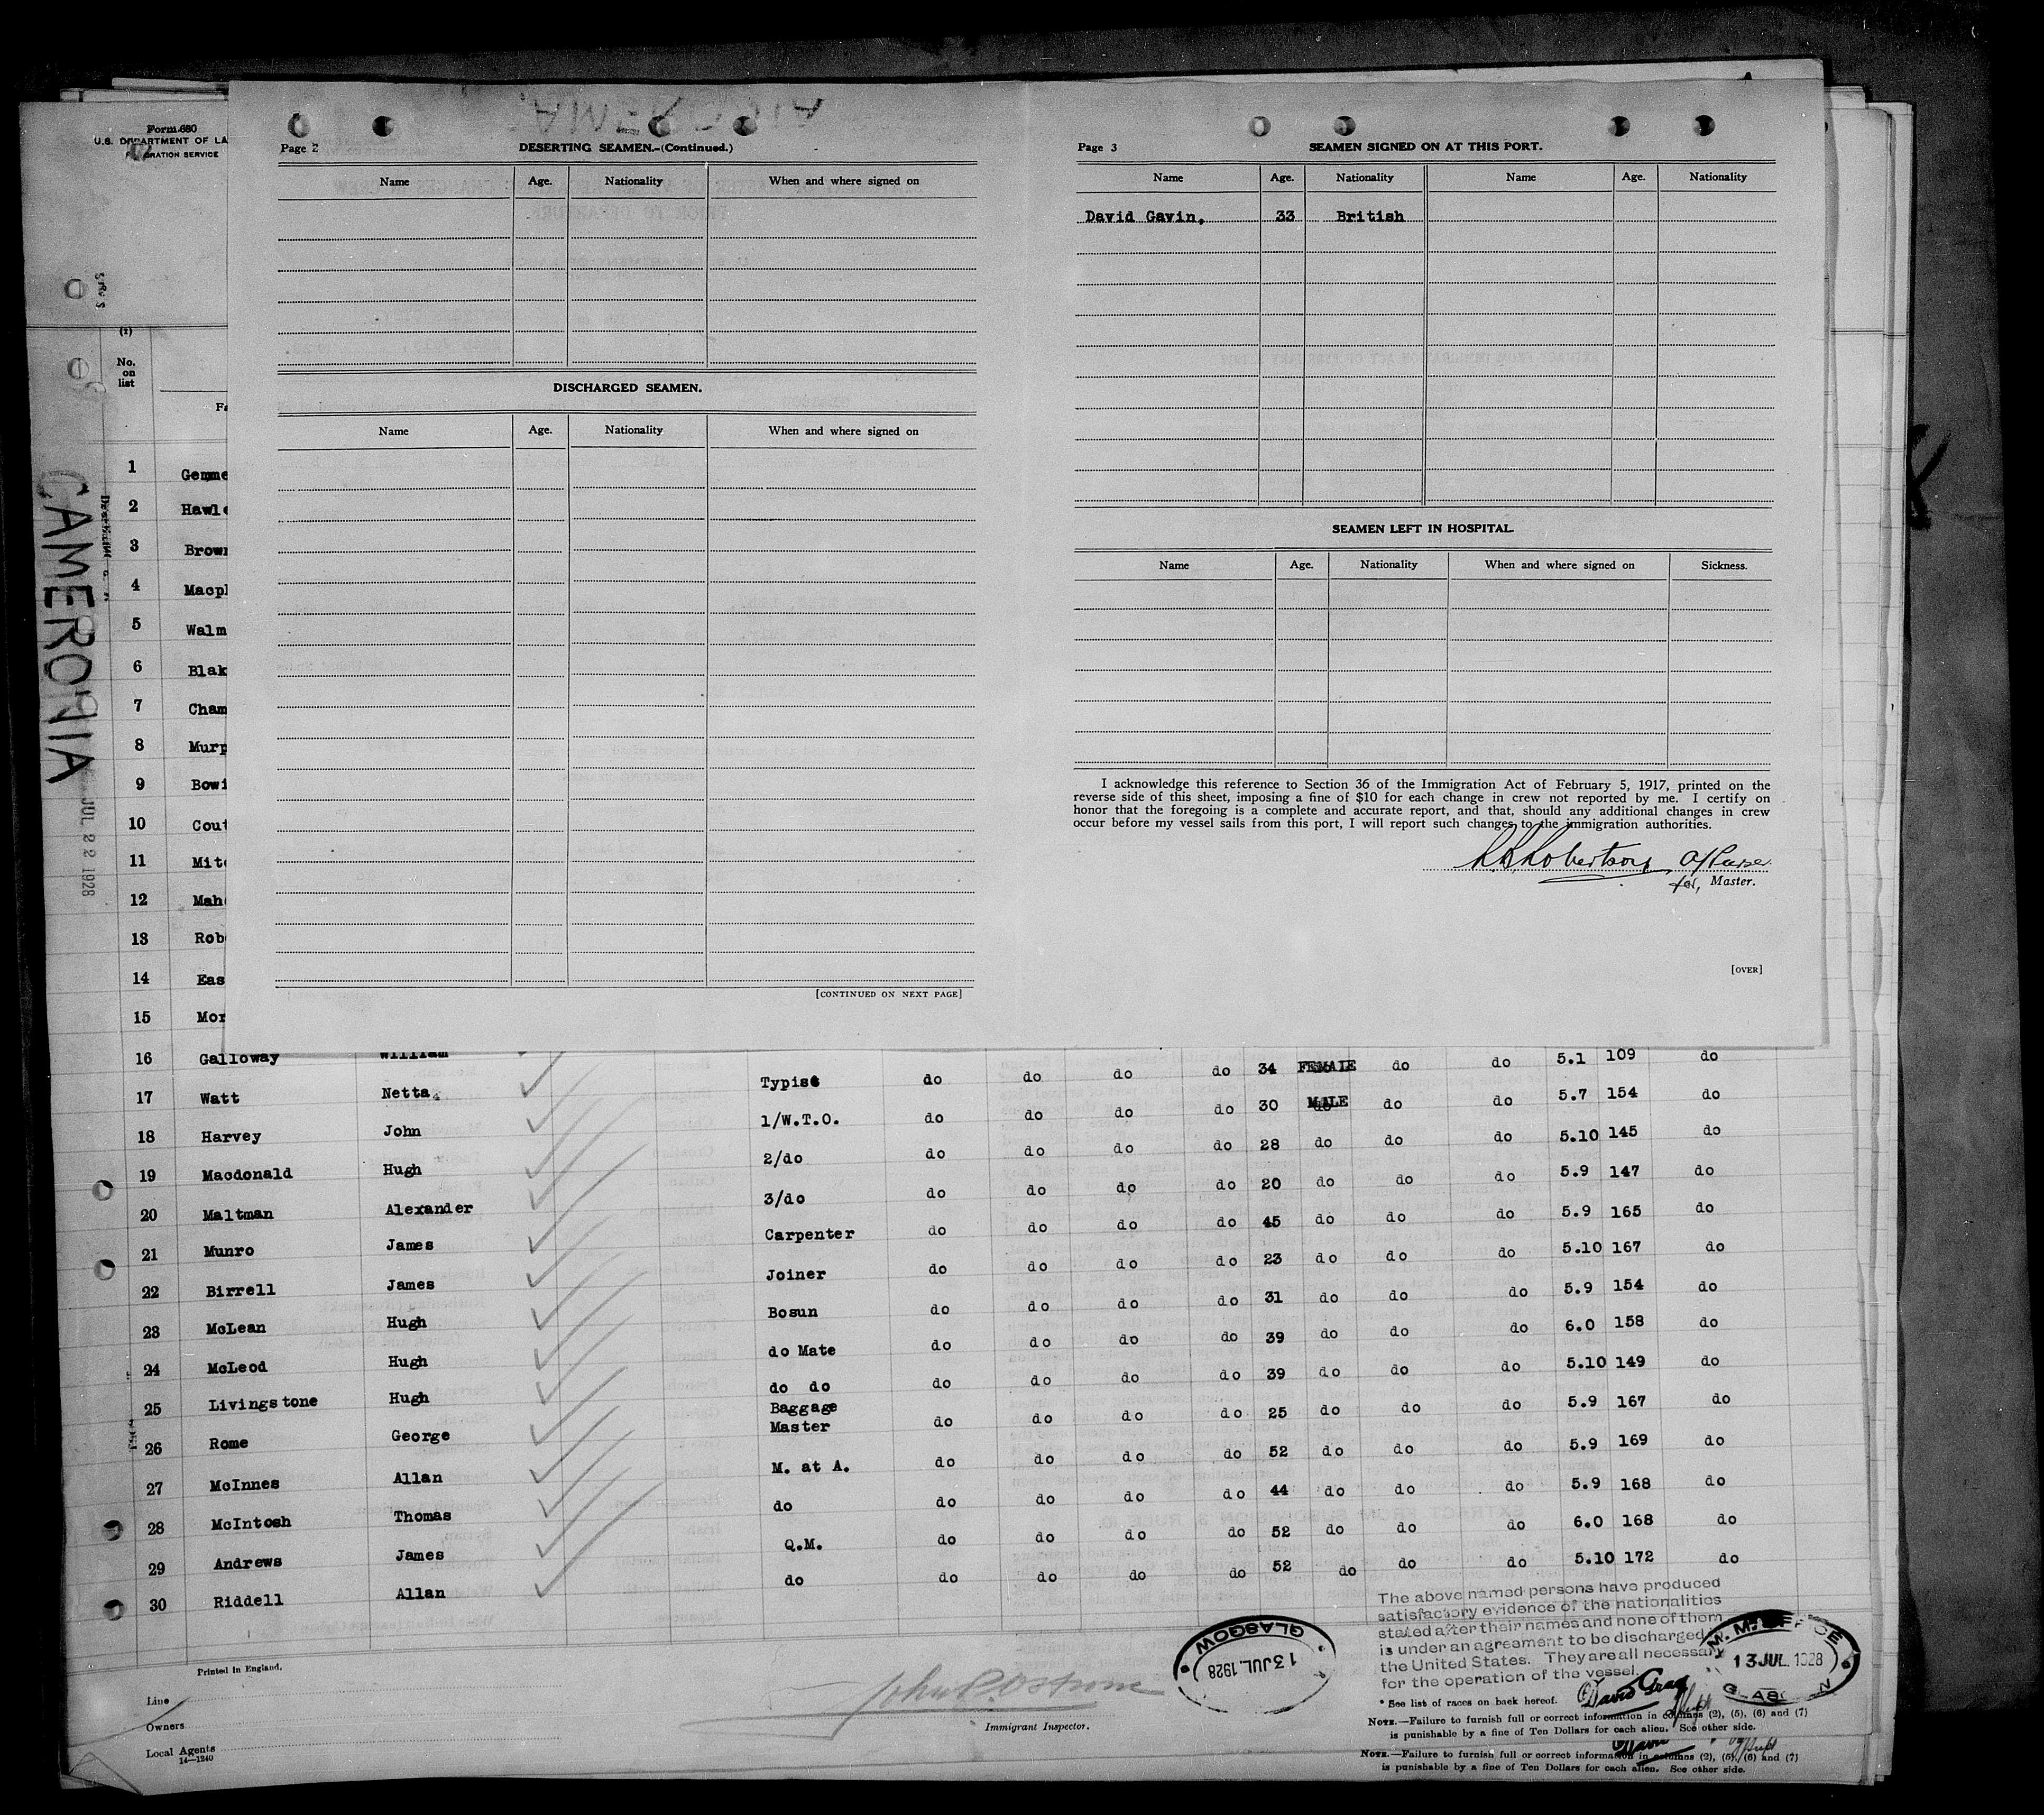 Form 680
U.S. DEPARTMENT OF LA
GRATION SERVICE
(1)
No.
on
list
CAMERONIA
JUL 22 1928
Page 2
DESERTING SEAMEN.-(Continued.)
Name Age. Nationality When and where signed on
DISCHARGED SEAMEN.
Name Age. Nationality When and where signed on
[CONTINUED ON NEXT PAGE]
Page 3
SEAMEN SIGNED ON AT THIS PORT.
Name Age. Nationality Name Age. Nationality
David Gavin, 33 British
SEAMEN LEFT IN HOSPITAL.
Name Age. Nationality When and where signed on Sickness.
I acknowledge this reference to Section 36 of the Immigration Act of February 5, 1917, printed on the
reverse side of this sheet, imposing a fine of $10 for each change in crew not reported by me. I certify on
honor that the foregoing is a complete and accurate report, and that, should any additional changes in crew
occur before my vessel sails from this port, I will report such changes to the immigration authorities.
Robertson
for, Master.
[OVER]
1 Gemme
2 Hawle
3 Brown
4 Macph
5 Walm
6 Blak
7 Cham
8 Murp
9 Bowi
10 Cout
11 Mitc
12 Mah
13 Rob
14 Eas
15 Mor
16 Galloway William
17 Watt Netta Typist do do do do 34 FEMALE do do 5.1 109 do
18 Harvey John 1/W.T.O. do do do do 30 MALE do do 5.7 154 do
19 Macdonald Hugh 2/do do do do do 28 do do do 5.10 145 do
20 Maltman Alexander 3/do do do do do 20 do do do 5.9 147 do
21 Munro James Carpenter do do do do 45 do do do 5.9 165 do
22 Birrell James Joiner do do do do 23 do do do 5.10 167 do
23 McLean Hugh Bosun do do do do 31 do do do 5.9 154 do
24 McLeod Hugh do Mate do do do do 39 do do do 6.0 158 do
25 Livingstone Hugh do do do do do do 39 do do do 5.10 149 do
26 Rome George Baggage Master do do do do 25 do do do 5.9 167 do
27 McInnes Allan M. at A. do do do do 52 do do do 5.9 169 do
28 McIntosh Thomas do do do do do 44 do do do 5.9 168 do
29 Andrews James Q.M. do do do do 52 do do do 6.0 168 do
30 Riddell Allan do do do do do 52 do do do 5.10 172 do
The above named persons have produced
satisfactory evidence of the nationalities
stated after their names and none of them
is under an agreement to be discharged
the United States. They are all necessary
for the operation of the vessel.
GLASGOW
13 JUL. 1928
13 JUL. 1928
GLASGOW
Printed in England.
Line
Owners
Local Agents
14—1240
Immigrant Inspector.
* See list of races on back hereof.
David Gray
NOTE.—Failure to furnish full or correct information in columns (2), (5), (6) and (7)
is punishable by a fine of Ten Dollars for each alien. See other side.
NOTE.—Failure to furnish full or correct information in columns (2), (5), (6) and (7)
is punishable by a fine of Ten Dollars for each alien. See other side.